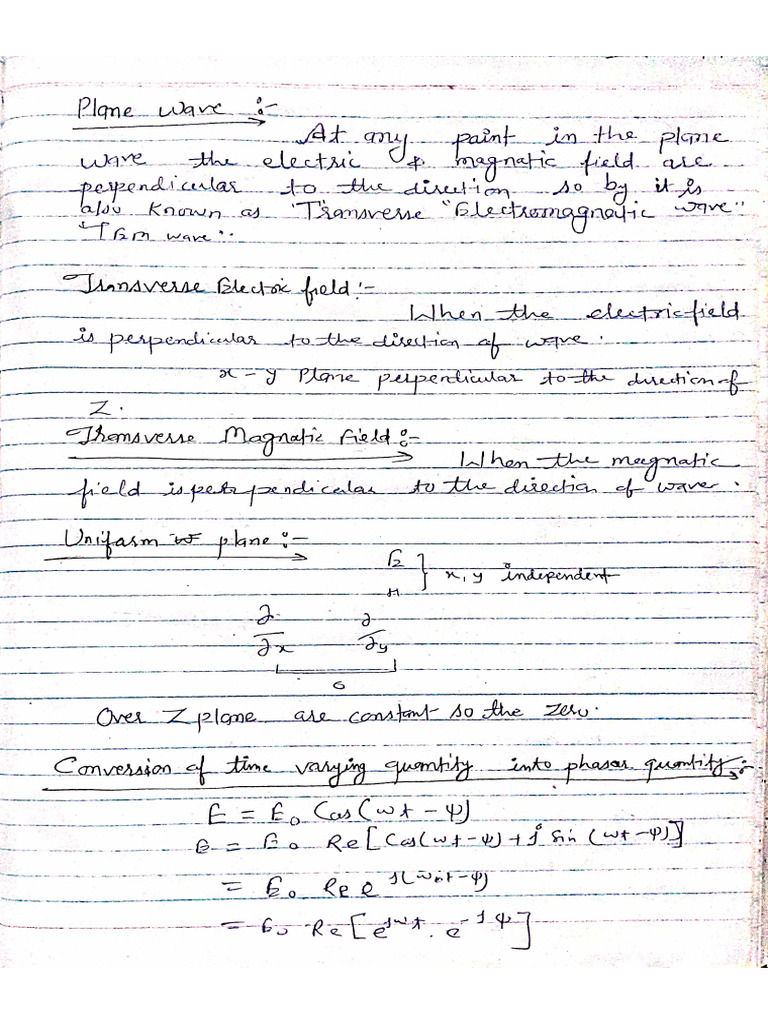 Plane wave :-
At any paint in the plane
wave the electric & magnatic field are
perpendicular to the direction so by it is
also known as "Transverse "Electromagnatic wave"
"TEM wave".
Transverse Electric field :-
When the electric field
is perpendicular to the direction of wave.
x - y plane perpendicular to the direction of
Z.
Transverse Magnatic Field :-
When the magnatic
field is perpendicular to the direction of wave.
Uniform w plane :-
E
H } x, y independent
∂/∂x ∂/∂y
0
Over Z plane are constant so the zero.
Conversion of time varying quantity into phasor quantity :-
E = E₀ Cos(ωt - ψ)
E = E₀ Re[Cos(ωt - ψ) + j sin (ωt - ψ)]
= E₀ Re e^j(ωt - ψ)
= E₀ Re[e^jωt . e^-jψ]